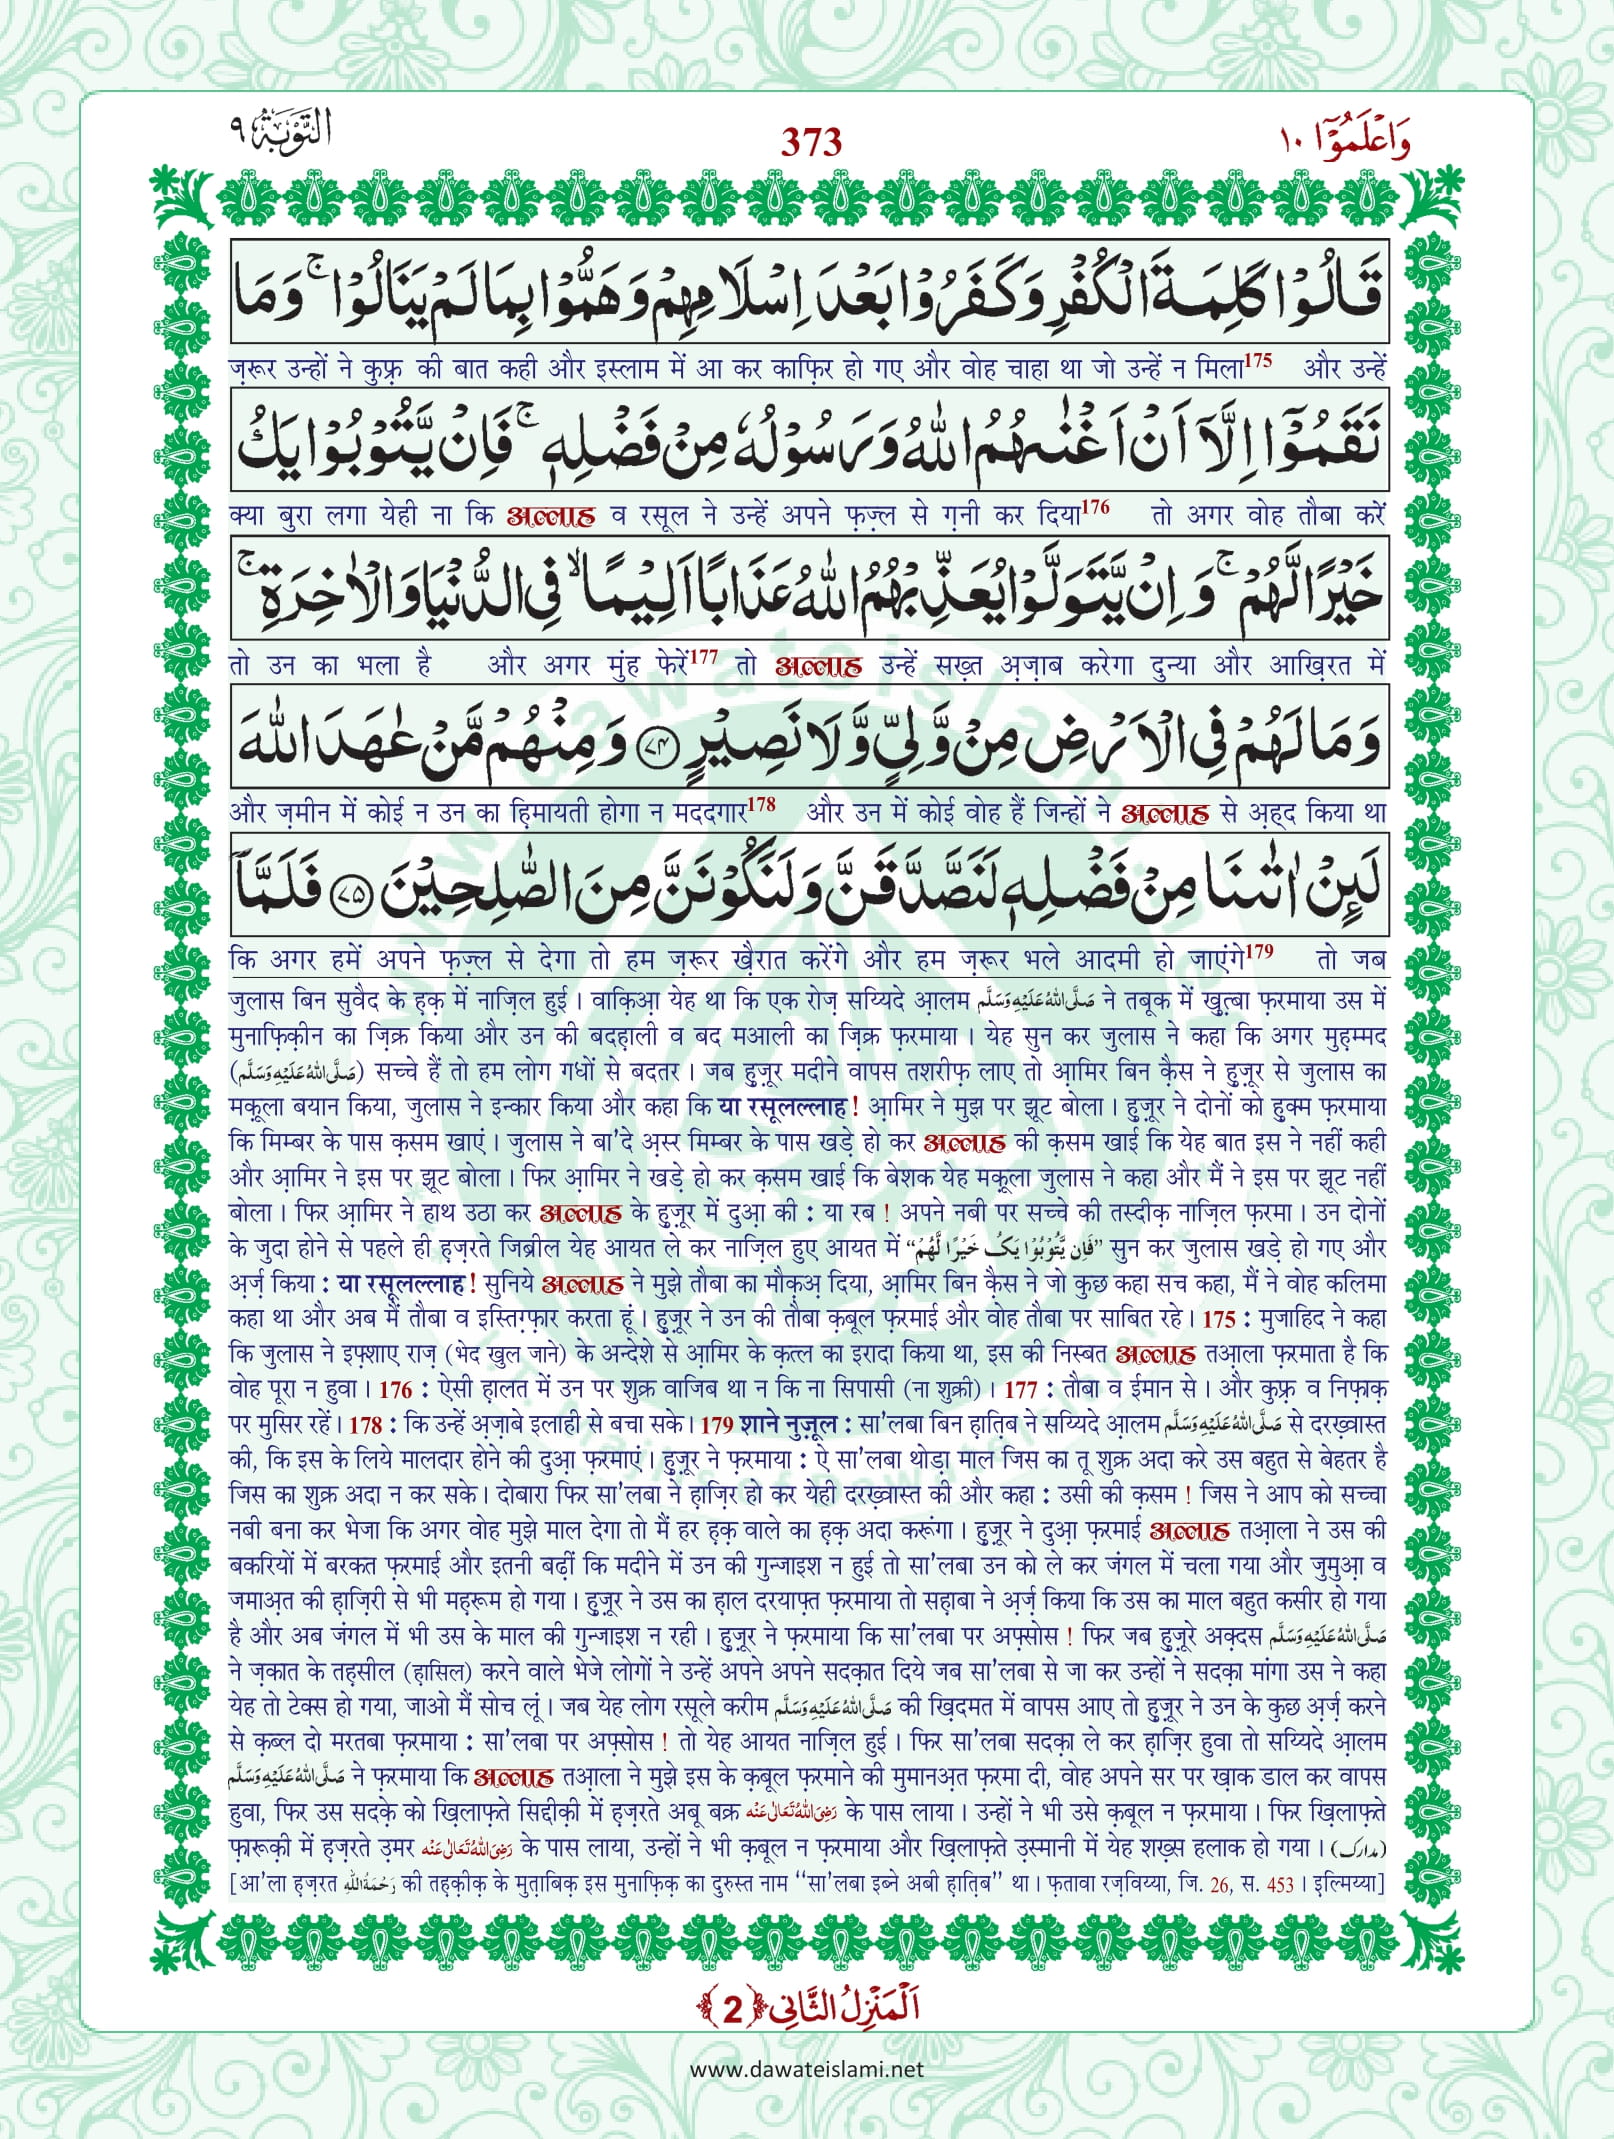 وَاعْلَمُوْۤا ۱۰
373
التَّوْبَة ۹
قَالُوْا كَلِمَةَ الْكُفْرِ وَكَفَرُوْا بَعْدَ اِسْلَامِهِمْ وَهَمُّوْا بِمَا لَمْ یَنَالُوْا ۚ وَمَا
ज़रूर उन्हों ने कुफ़्र की बात कही और इस्लाम में आ कर काफ़िर हो गए और वोह चाहा था जो उन्हें न मिला175 और उन्हें
نَقَمُوْۤا اِلَّاۤ اَنْ اَغْنٰىهُمُ اللّٰهُ وَرَسُوْلُهٗ مِنْ فَضْلِهٖ ۚ فَاِنْ یَّتُوْبُوْا یَكُ
क्या बुरा लगा येही ना कि अल्लाह व रसूल ने उन्हें अपने फ़ज़्ल से ग़नी कर दिया176 तो अगर वोह तौबा करें
خَیْرًا لَّهُمْ ۚ وَاِنْ یَّتَوَلَّوْا یُعَذِّبْهُمُ اللّٰهُ عَذَابًا اَلِیْمًا ۙ فِی الدُّنْیَا وَالْاٰخِرَةِ ۚ
तो उन का भला है और अगर मुंह फेरें177 तो अल्लाह उन्हें सख़्त अ़ज़ाब करेगा दुन्या और आख़िरत में
وَمَا لَهُمْ فِی الْاَرْضِ مِنْ وَّلِیٍّ وَّلَا نَصِیْرٍ ﴿۷۴﴾ وَمِنْهُمْ مَّنْ عٰهَدَ اللّٰهَ
और ज़मीन में कोई न उन का हि़मायती होगा न मददगार178 और उन में कोई वोह हैं जिन्हों ने अल्लाह से अ़ह्द किया था
لَئِنْ اٰتٰىنَا مِنْ فَضْلِهٖ لَنَصَّدَّقَنَّ وَلَنَكُوْنَنَّ مِنَ الصّٰلِحِیْنَ ﴿۷۵﴾ فَلَمَّاۤ
कि अगर हमें अपने फ़ज़्ल से देगा तो हम ज़रूर ख़ैरात करेंगे और हम ज़रूर भले आदमी हो जाएंगे179 तो जब
जुलास बिन सुवैद के ह़क़ में नाज़िल हुई। वाक़िआ़ येह था कि एक रोज़ सय्यिदे आ़लम صَلَّى اللهُ عَلَيْهِ وَسَلَّم ने तबूक में ख़ुत़्बा फ़रमाया उस में
मुनाफ़िक़ीन का ज़िक्र किया और उन की बदह़ाली व बद मआली का ज़िक्र फ़रमाया। येह सुन कर जुलास ने कहा कि अगर मुह़म्मद
(صَلَّى اللهُ عَلَيْهِ وَسَلَّم) सच्चे हैं तो हम लोग गधों से बदतर। जब हु़ज़ूर मदीने वापस तशरीफ़ लाए तो आ़मिर बिन क़ैस ने हु़ज़ूर से जुलास का
मक़ूला बयान किया, जुलास ने इन्कार किया और कहा कि या रसूलल्लाह! आ़मिर ने मुझ पर झूट बोला। हु़ज़ूर ने दोनों को हु़क्म फ़रमाया
कि मिम्बर के पास क़सम खाएं। जुलास ने बा'दे अ़स्र मिम्बर के पास खड़े हो कर अल्लाह की क़सम खाई कि येह बात इस ने नहीं कही
और आ़मिर ने इस पर झूट बोला। फिर आ़मिर ने खड़े हो कर क़सम खाई कि बेशक येह मक़ूला जुलास ने कहा और मैं ने इस पर झूट नहीं
बोला। फिर आ़मिर ने हाथ उठा कर अल्लाह के हु़ज़ूर में दुआ़ की : या रब! अपने नबी पर सच्चे की तस्दीक़ नाज़िल फ़रमा। उन दोनों
के जुदा होने से पहले ही ह़ज़रते जिब्रील येह आयत ले कर नाज़िल हुए आयत में “فَاِنْ یَّتُوْبُوْا یَكُ خَیْرًا لَّهُمْ” सुन कर जुलास खड़े हो गए और
अ़र्ज़ किया : या रसूलल्लाह! सुनिये अल्लाह ने मुझे तौबा का मौक़अ़ दिया, आ़मिर बिन क़ैस ने जो कुछ कहा सच कहा, मैं ने वोह कलिमा
कहा था और अब मैं तौबा व इस्तिग़्फ़ार करता हूं। हु़ज़ूर ने उन की तौबा क़बूल फ़रमाई और वोह तौबा पर साबित रहे। 175 : मुजाहिद ने कहा
कि जुलास ने इफ़्शाए राज़ (भेद खुल जाने) के अन्देशे से आ़मिर के क़त्ल का इरादा किया था, इस की निस्बत अल्लाह तआ़ला फ़रमाता है कि
वोह पूरा न हुवा। 176 : ऐसी ह़ालत में उन पर शुक्र वाजिब था न कि ना सिपासी (ना शुक्री)। 177 : तौबा व ईमान से। और कुफ़्र व निफ़ाक़
पर मुसिर रहें। 178 : कि उन्हें अ़ज़ाबे इलाही से बचा सके। 179 शाने नुज़ूल : सा'लबा बिन ह़ात़िब ने सय्यिदे आ़लम صَلَّى اللهُ عَلَيْهِ وَسَلَّم से दरख़्वास्त
की, कि इस के लिये मालदार होने की दुआ़ फ़रमाएं। हु़ज़ूर ने फ़रमाया : ऐ सा'लबा थोड़ा माल जिस का तू शुक्र अदा करे उस बहुत से बेहतर है
जिस का शुक्र अदा न कर सके। दोबारा फिर सा'लबा ने ह़ाज़िर हो कर येही दरख़्वास्त की और कहा : उसी की क़सम! जिस ने आप को सच्चा
नबी बना कर भेजा कि अगर वोह मुझे माल देगा तो मैं हर ह़क़ वाले का ह़क़ अदा करूंगा। हु़ज़ूर ने दुआ़ फ़रमाई अल्लाह तआ़ला ने उस की
बकरियों में बरकत फ़रमाई और इतनी बढ़ीं कि मदीने में उन की गुन्जाइश न हुई तो सा'लबा उन को ले कर जंगल में चला गया और जुमुआ़ व
जमाअ़त की ह़ाज़िरी से भी मह़रूम हो गया। हु़ज़ूर ने उस का ह़ाल दरयाफ़्त फ़रमाया तो सह़ाबा ने अ़र्ज़ किया कि उस का माल बहुत कसीर हो गया
है और अब जंगल में भी उस के माल की गुन्जाइश न रही। हु़ज़ूर ने फ़रमाया कि सा'लबा पर अफ़्सोस! फिर जब हु़ज़ूरे अक़्दस صَلَّى اللهُ عَلَيْهِ وَسَلَّم
ने ज़कात के तह़सील (ह़ासिल) करने वाले भेजे लोगों ने उन्हें अपने अपने सदक़ात दिये जब सा'लबा से जा कर उन्हों ने सदक़ा मांगा उस ने कहा
येह तो टेक्स हो गया, जाओ मैं सोच लूं। जब येह लोग रसूले करीम صَلَّى اللهُ عَلَيْهِ وَسَلَّم की ख़िदमत में वापस आए तो हु़ज़ूर ने उन के कुछ अ़र्ज़ करने
से क़ब्ल दो मरतबा फ़रमाया : सा'लबा पर अफ़्सोस! तो येह आयत नाज़िल हुई। फिर सा'लबा सदक़ा ले कर ह़ाज़िर हुवा तो सय्यिदे आ़लम
صَلَّى اللهُ عَلَيْهِ وَسَلَّم ने फ़रमाया कि अल्लाह तआ़ला ने मुझे इस के क़बूल फ़रमाने की मुमानअ़त फ़रमा दी, वोह अपने सर पर ख़ाक डाल कर वापस
हुवा, फिर उस सदक़े को ख़िलाफ़ते सिद्दीक़ी में ह़ज़रते अबू बक्र رَضِىَ اللهُ تَعَالٰى عَنْه के पास लाया। उन्हों ने भी उसे क़बूल न फ़रमाया। फिर ख़िलाफ़ते
फ़ारूक़ी में ह़ज़रते उ़मर رَضِىَ اللهُ تَعَالٰى عَنْه के पास लाया, उन्हों ने भी क़बूल न फ़रमाया और ख़िलाफ़ते उ़स्मानी में येह शख़्स हलाक हो गया। (مدارک)
[आ'ला ह़ज़रत رَحْمَةُ اللهِ की तह़क़ीक़ के मुत़ाबिक़ इस मुनाफ़िक़ का दुरुस्त नाम ‘‘सा'लबा इब्ने अबी ह़ात़िब’’ था। फ़तावा रज़विय्या, जि. 26, स. 453। इल्मिय्या]
اَلْمَنْزِلُ الثَّانِی ﴿2﴾
www.dawateislami.net